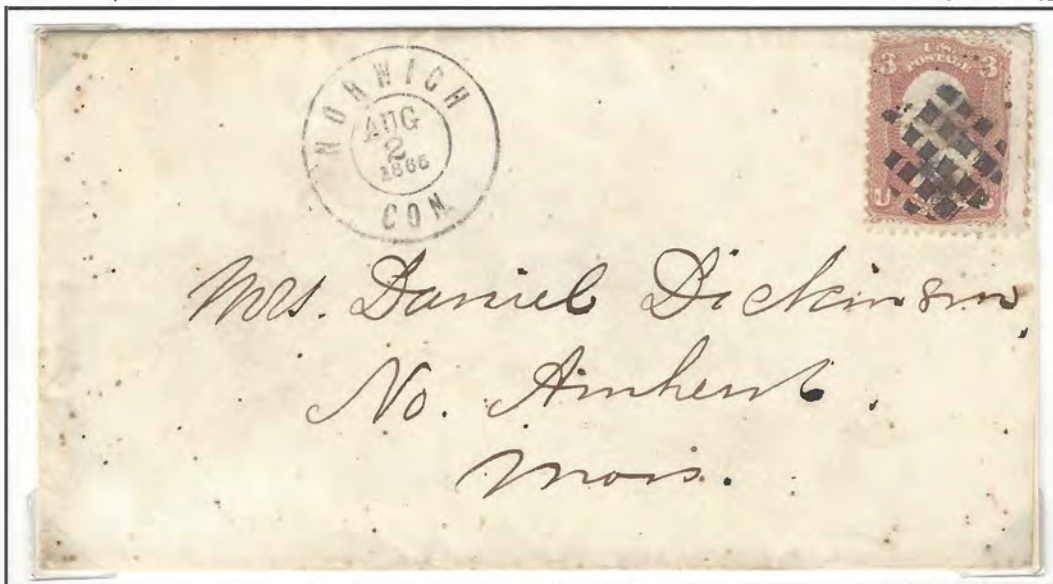 NORWICH
AUG
2
1865
CON.
3 U.S. 3
POSTAGE
U S
Mrs. Daniel Dickinson,
No. Amherst.
Mass.